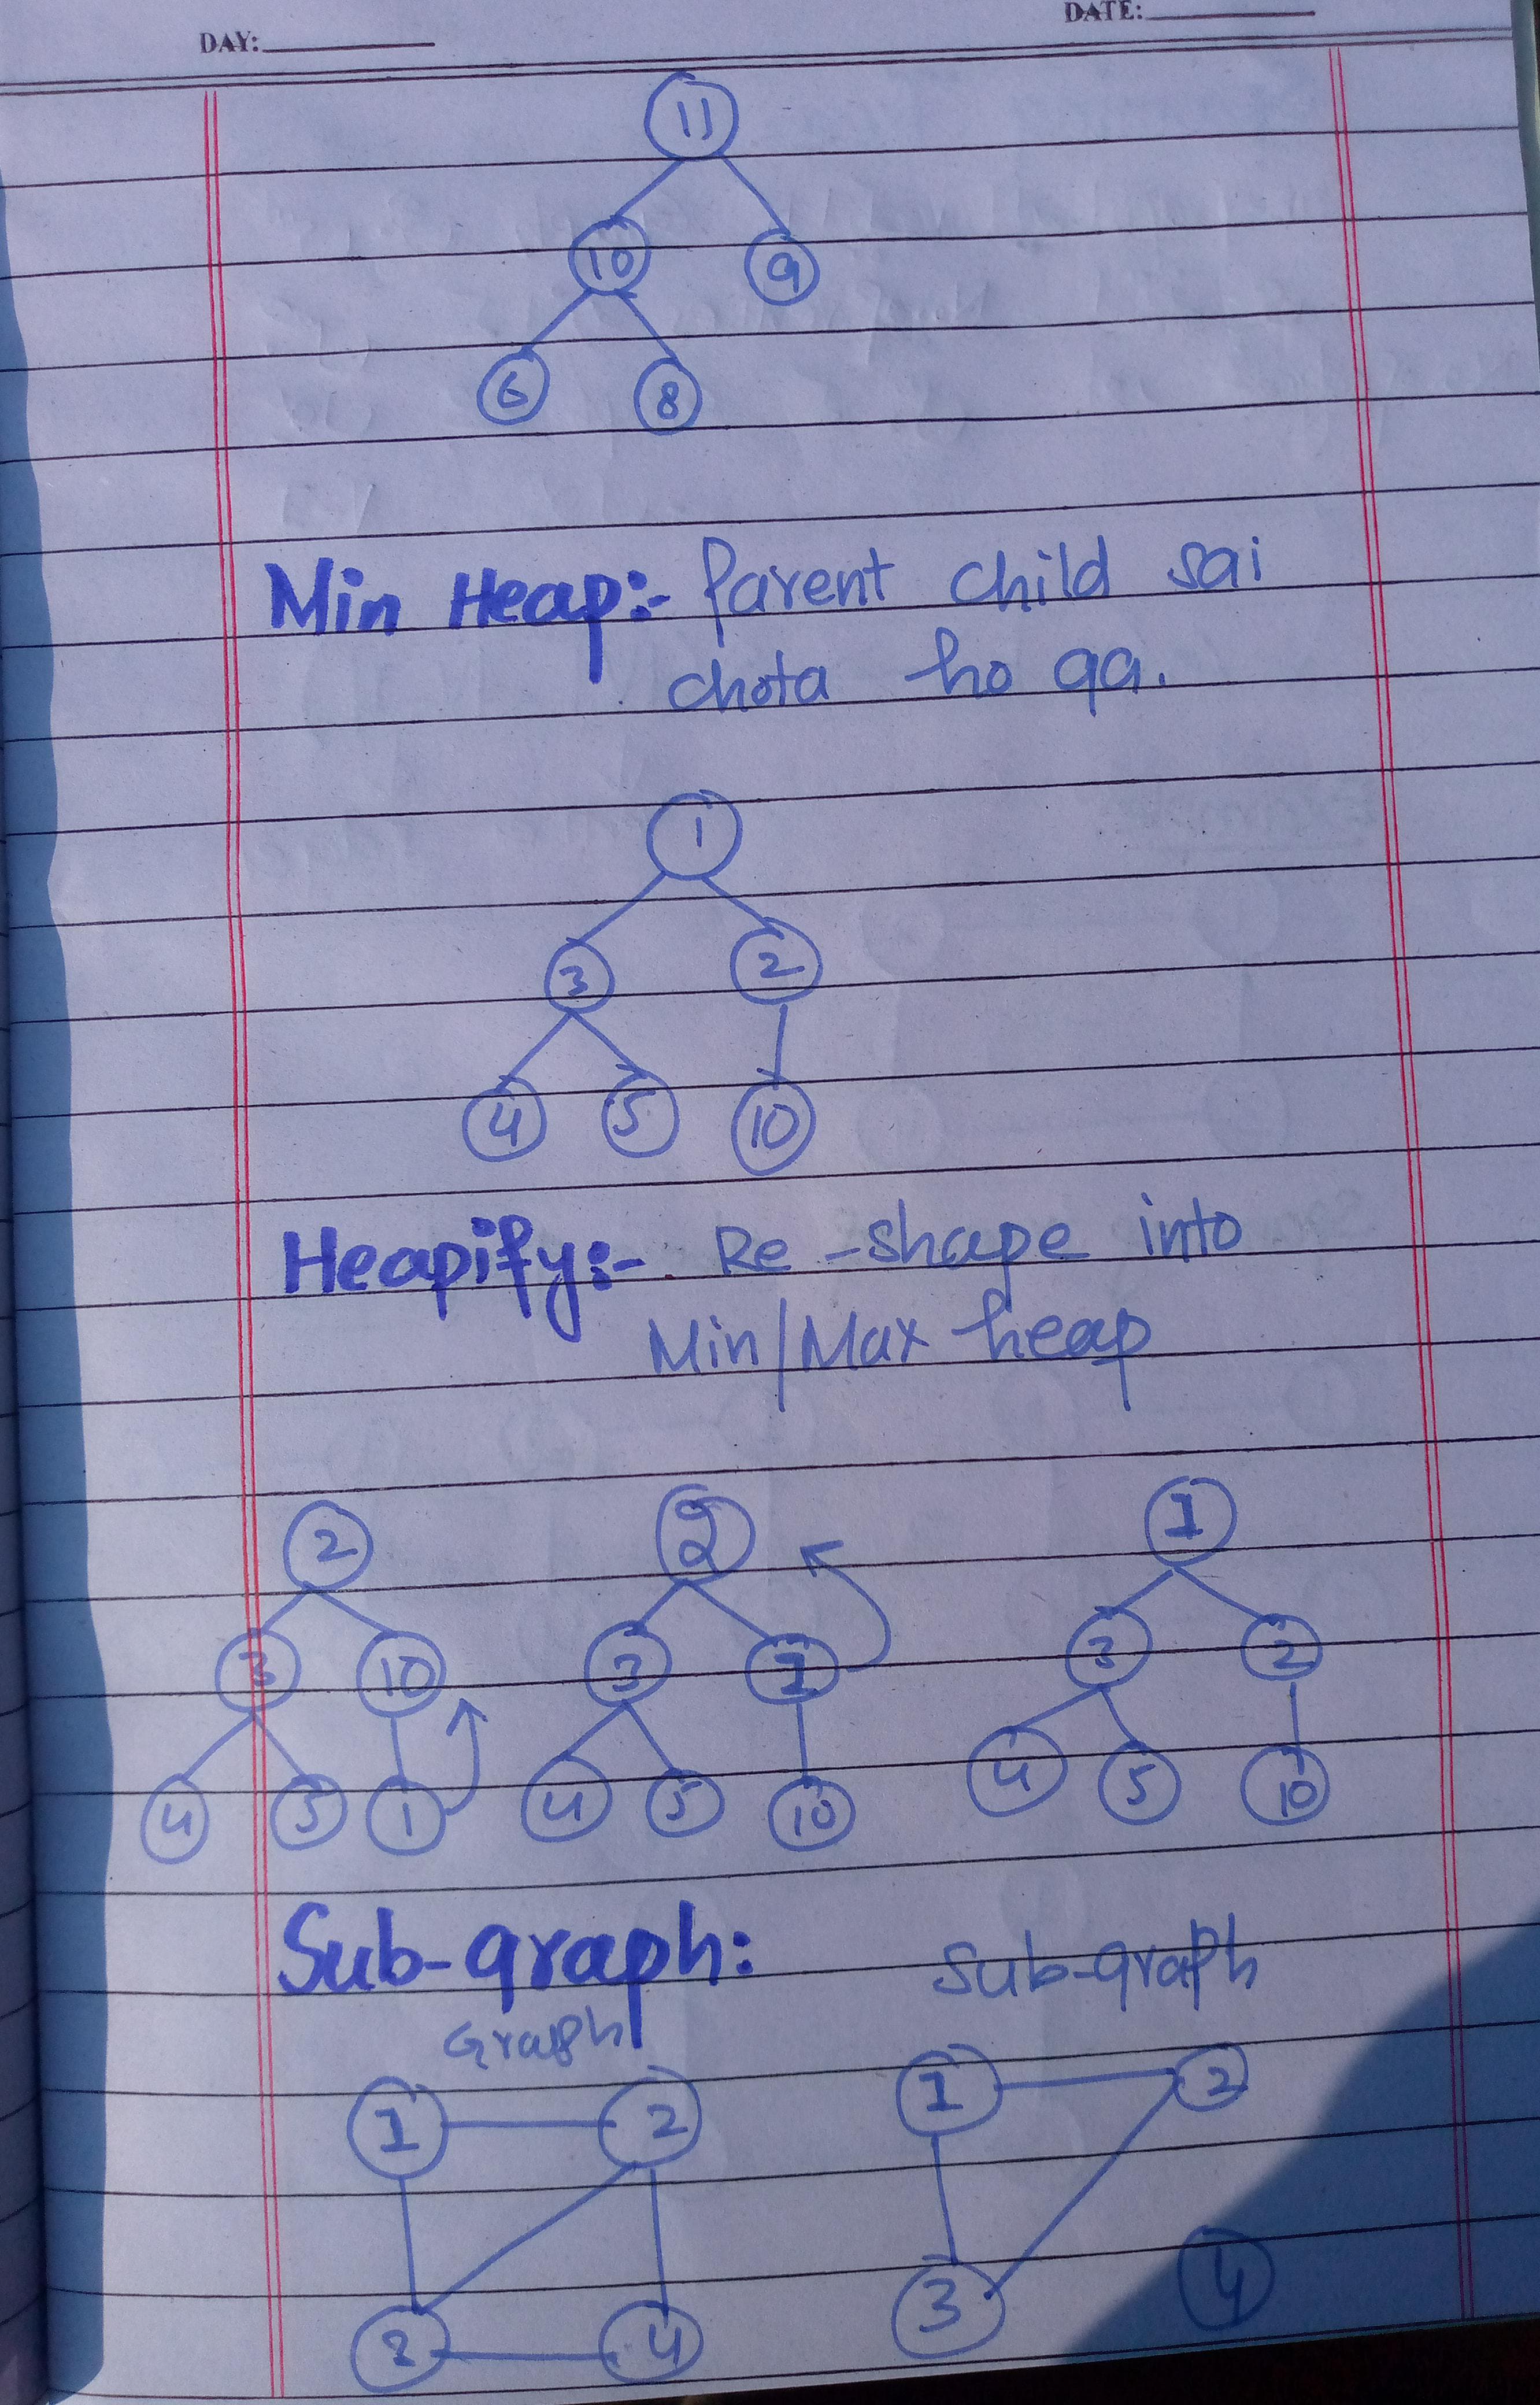 DAY:
DATE:
11
10 9
6 8
Min Heap:- Parent child sai
chota ho ga.
1
3 2
4 5 10
Heapify:- Re-shape into
Min/Max heap
2 2 1
3 10 3 1 3 2
4 5 1 4 5 10 4 5 10
Sub-graph: Sub-graph
Graph
1 2 1 2
3 4 3 4